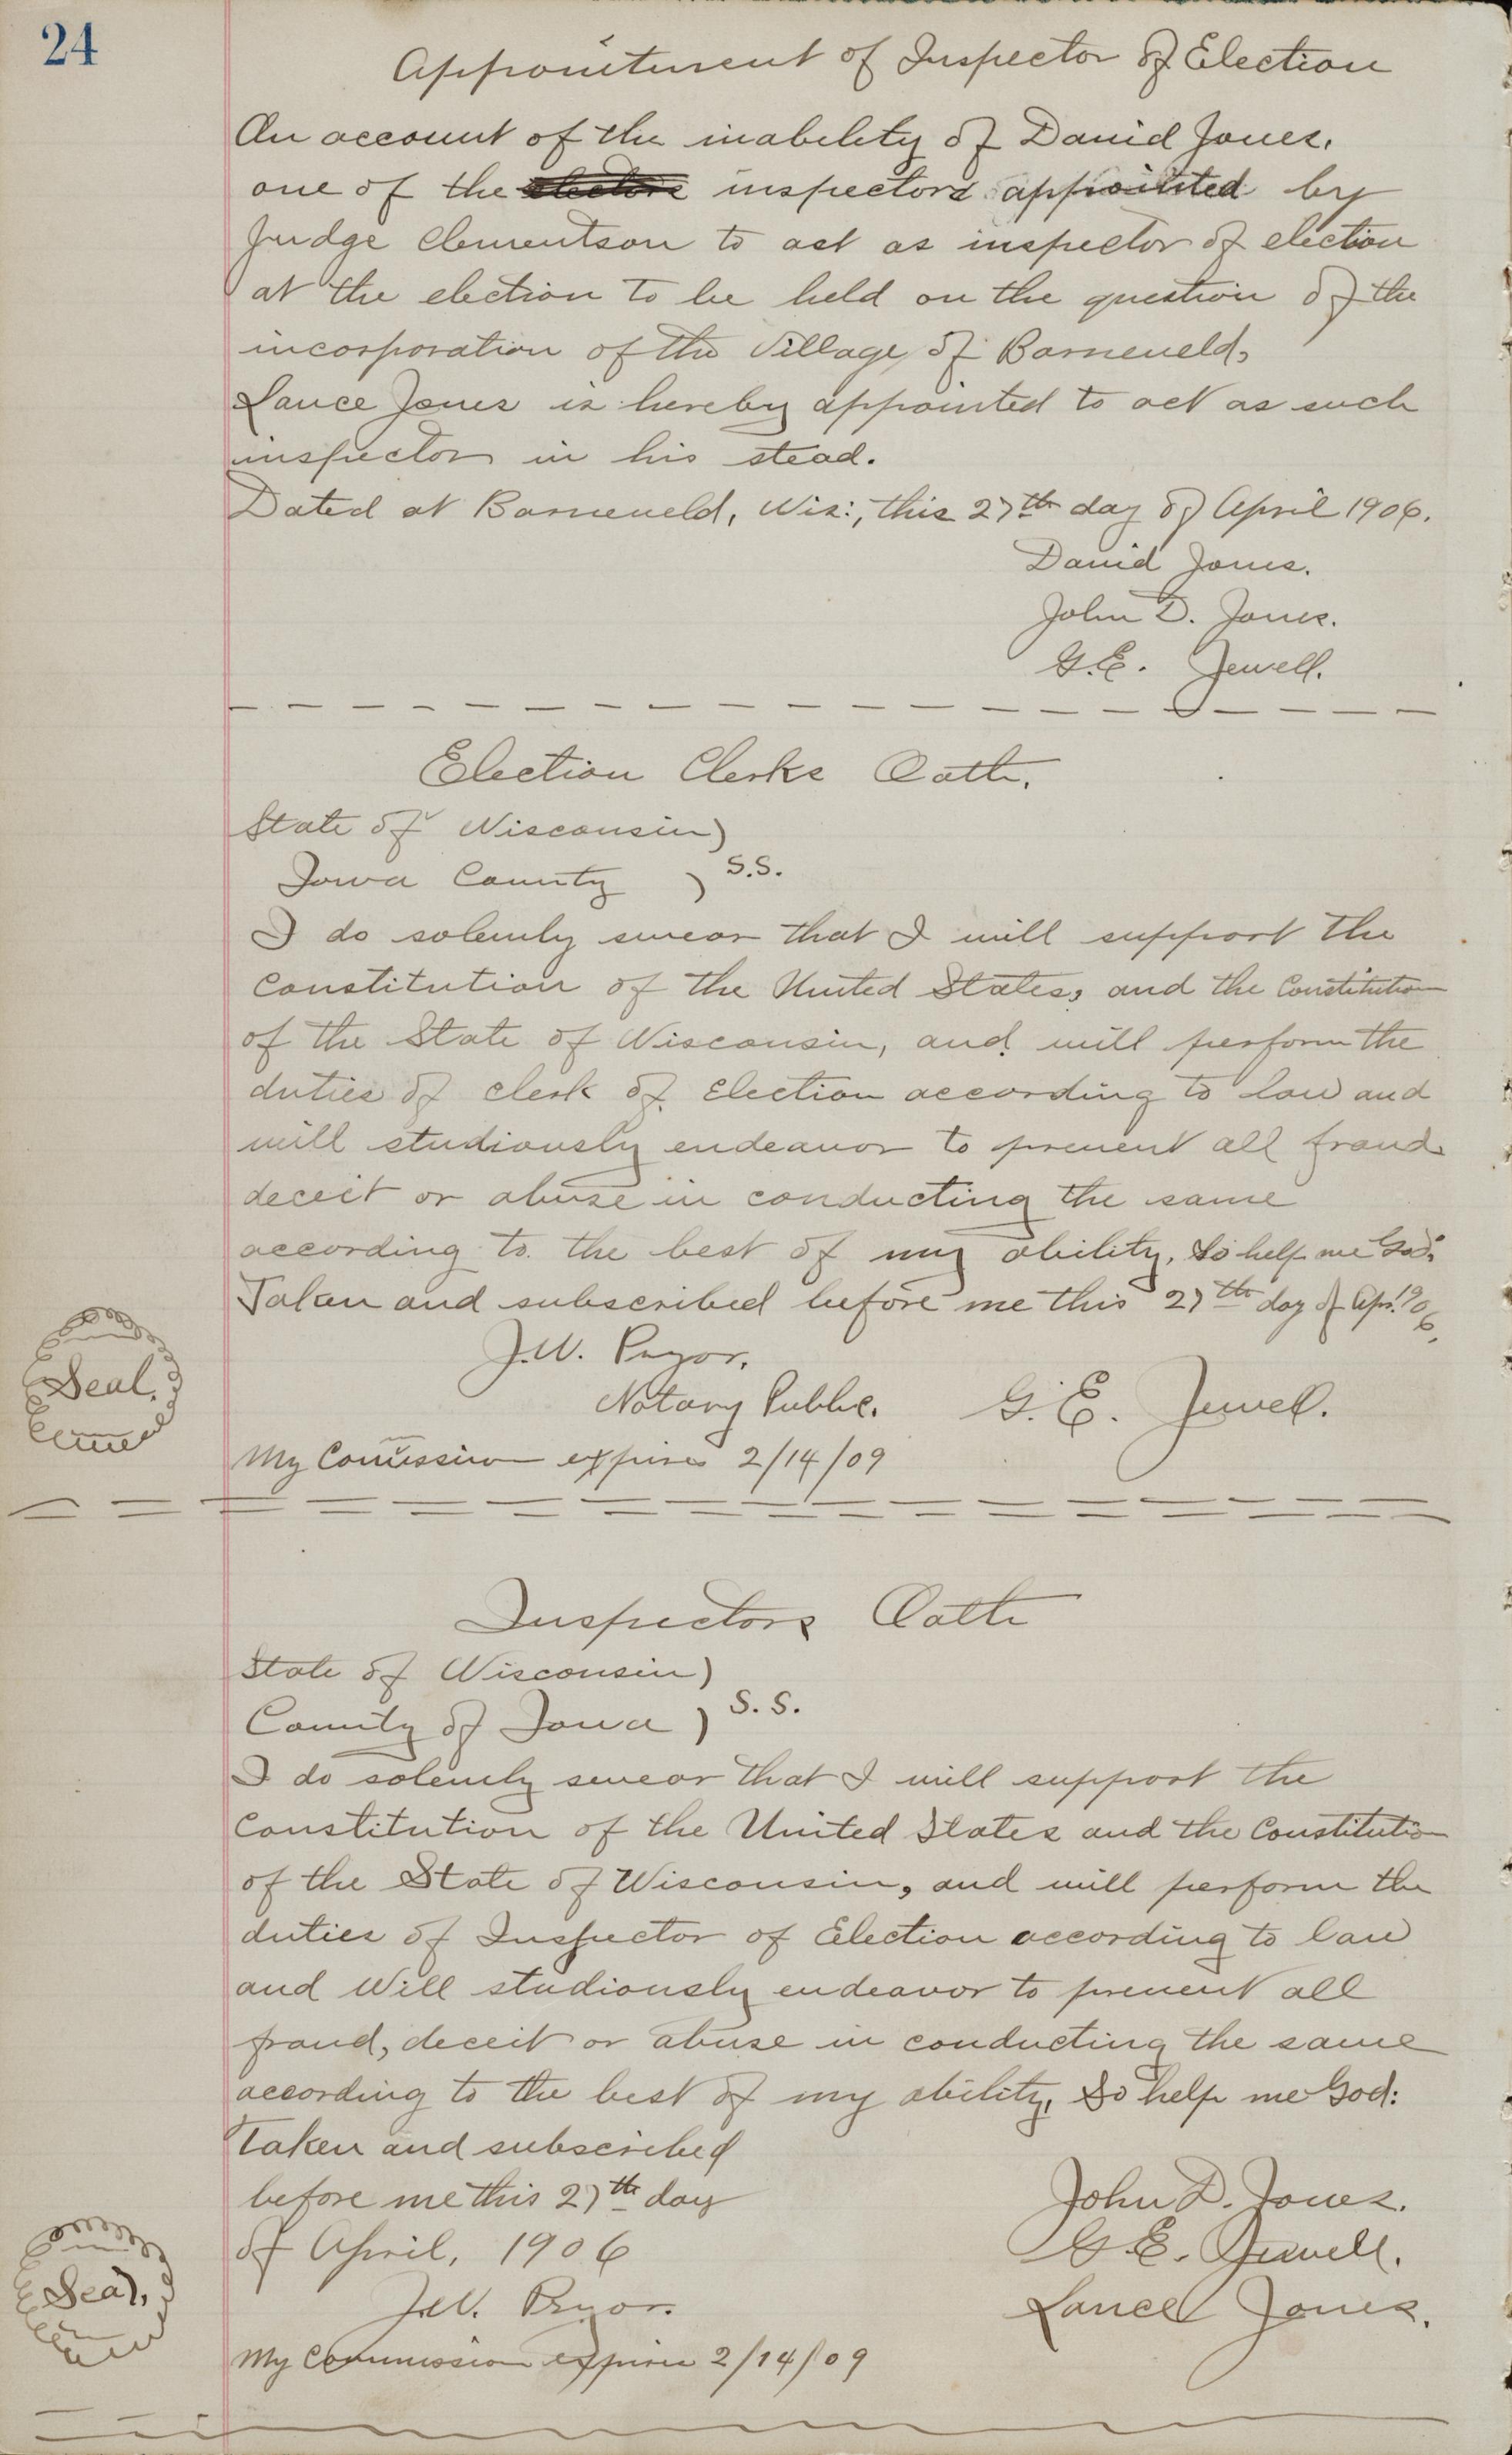 24
Appointment of Inspector of Election
On account of the inability of David Jones,
one of the electors inspectors appointed by
Judge Clementson to act as inspector of election
at the election to be held on the question of the
incorporation of the Village of Barneveld,
Lance Jones is hereby appointed to act as such
inspector in his stead.
Dated at Barneveld, Wis:, this 27th day of April 1906.
David Jones.
John D. Jones.
G.E. Jewell.
Election Clerks Oath.
State of Wisconsin)
Iowa County ) S.S.
I do solemly swear that I will support the
Constitution of the United States, and the Constitution
of the State of Wisconsin, and will perform the
duties of clerk of Election according to law and
will studiously endeavor to prevent all fraud
deceit or abuse in conducting the same
according to the best of my ability, So help me God.
Taken and subscribed before me this 27th day of Apr. 1906.
J.W. Pryor.
Seal.
Notary Public. G. E. Jewell.
My Comission expires 2/14/09
Inspectors Oath
State of Wisconsin)
County of Iowa ) S.S.
I do solemly swear that I will support the
Constitution of the United States and the Constitution
of the State of Wisconsin, and will perform the
duties of Inspector of Election according to law
and Will studiously endeavor to prevent all
fraud, deceit or abuse in conducting the same
according to the best of my ability, So help me God:
Taken and subscribed
before me this 27th day
John D. Jones.
of April, 1906
G.E. Jewell.
Seal.
J.W. Pryor.
Lance Jones.
My Commission expire 2/14/09